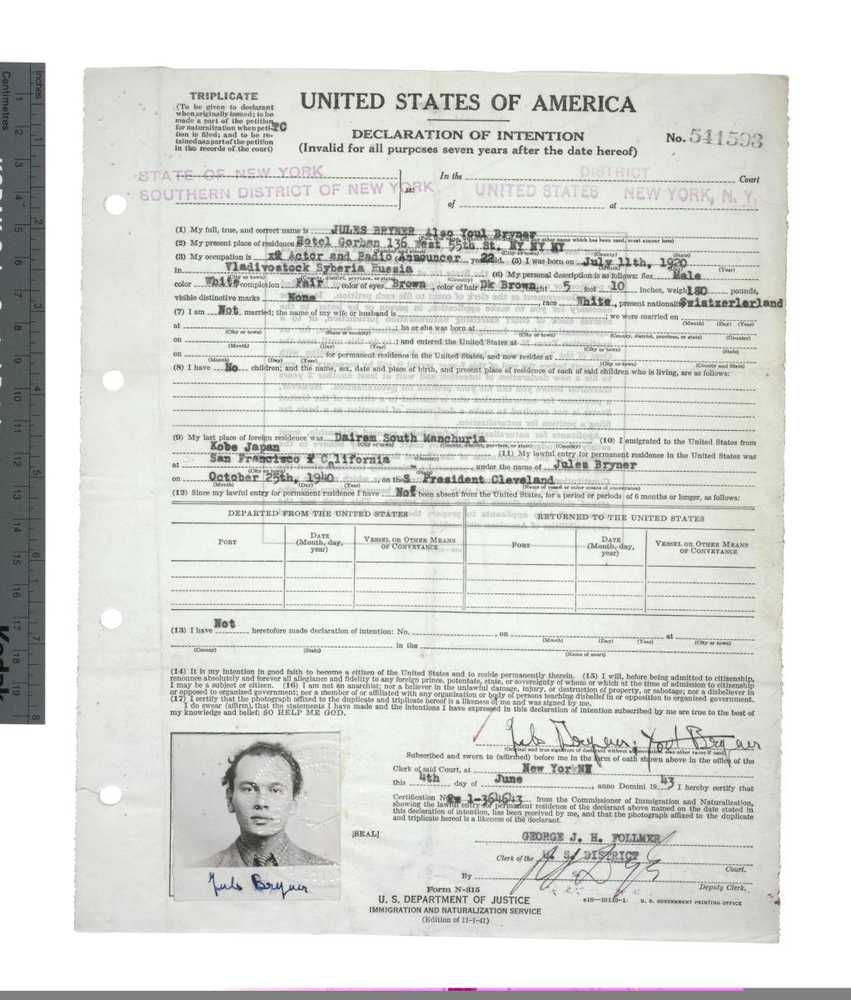 TRIPLICATE
(To be given to declarant
when originally issued; to be
made a part of the petition
for naturalization when peti-
tion is filed; and to be re-
tained as a part of the petition
in the records of the court)
TC
UNITED STATES OF AMERICA
DECLARATION OF INTENTION
(Invalid for all purposes seven years after the date hereof)
No. 541593
STATE OF NEW YORK
SOUTHERN DISTRICT OF NEW YORK
ss:
In the DISTRICT Court
of UNITED STATES at NEW YORK, N. Y.
(1) My full, true, and correct name is JULES BRYNER Also Youl Bryner
(2) My present place of residence Hotel Gorham 136 West 55th St. NY NY NY
(3) My occupation is Actor and Radio Announcer years old. 22 (5) I was born on July 11th, 1920
in Vladivostock Syberia Russia (6) My personal description is as follows: Sex Male
color White complexion Fair, color of eyes Brown, color of hair Dk Brown height 5 feet 10 inches, weight 180 pounds,
visible distinctive marks None, race White, present nationality Swiatzerlerland
(7) I am Not married; the name of my wife or husband is ; we were married on
(Month) (Day) (Year)
at ; he or she was born at
(City or town) (State or country) (City or town) (County, district, province, or state) (Country)
on ; and entered the United States at
(Month) (Day) (Year) (City or town) (State)
on for permanent residence in the United States, and now resides at
(Month) (Day) (Year) (City or town) (County and State)
(8) I have No children; and the name, sex, date and place of birth, and present place of residence of each of said children who is living, are as follows:
(9) My last place of foreign residence was Dairen South Manchuria (10) I emigrated to the United States from
Kobe Japan (11) My lawful entry for permanent residence in the United States was
at San Francisco California, under the name of Jules Bryner
on October 25th, 1940, on the S President Cleveland
(Month) (Day) (Year) (Name of vessel or other means of conveyance)
(12) Since my lawful entry for permanent residence I have Not been absent from the United States, for a period or periods of 6 months or longer, as follows:
DEPARTED FROM THE UNITED STATES RETURNED TO THE UNITED STATES
PORT DATE (Month, day, year) VESSEL OR OTHER MEANS OF CONVEYANCE PORT DATE (Month, day, year) VESSEL OR OTHER MEANS OF CONVEYANCE
(13) I have Not heretofore made declaration of intention: No. on at
(Month) (Day) (Year) (City or town)
in the
(County) (State) (Name of court)
(14) It is my intention in good faith to become a citizen of the United States and to reside permanently therein. (15) I will, before being admitted to citizenship,
renounce absolutely and forever all allegiance and fidelity to any foreign prince, potentate, state, or sovereignty of whom or which at the time of admission to citizenship
I may be a subject or citizen. (16) I am not an anarchist; nor a believer in the unlawful damage, injury, or destruction of property, or sabotage; nor a disbeliever in
or opposed to organized government; nor a member of or affiliated with any organization or body of persons teaching disbelief in or opposition to organized government.
(17) I certify that the photograph affixed to the duplicate and triplicate hereof is a likeness of me and was signed by me.
I do swear (affirm), that the statements I have made and the intentions I have expressed in this declaration of intention subscribed by me are true to the best of
my knowledge and belief: SO HELP ME GOD.
Jules Bryner; Youl Bryner
Subscribed and sworn to (affirmed) before me in the form of oath shown above in the office of the
Clerk of said Court, at New York NY
this 4th day of June anno Domini 19 43 I hereby certify that
Certification No. 1-364643 from the Commissioner of Immigration and Naturalization,
showing the lawful entry for permanent residence of the declarant above named on the date stated in
this declaration of intention, has been received by me, and that the photograph affixed to the duplicate
and triplicate hereof is a likeness of the declarant.
Jules Bryner
[SEAL]
GEORGE J. H. FOLLMER
Clerk of the U. S. DISTRICT Court.
By Deputy Clerk.
Form N-315
U. S. DEPARTMENT OF JUSTICE
IMMIGRATION AND NATURALIZATION SERVICE
(Edition of 11-1-41)
U. S. GOVERNMENT PRINTING OFFICE
Inches
1 2 3 4 5 6 7 8
Centimetres
Kodak